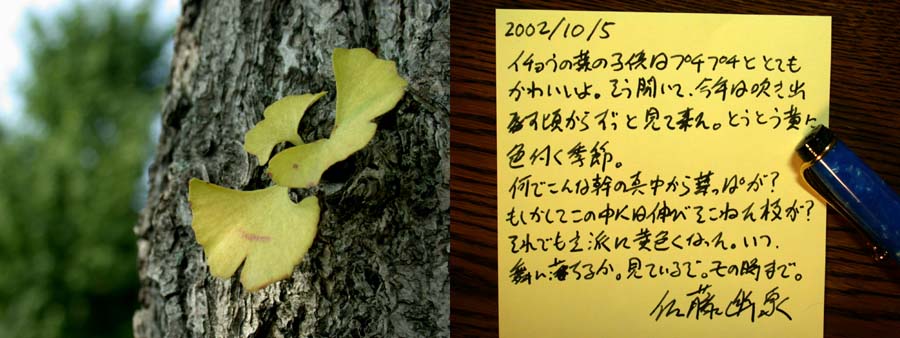 2002/10/5
イチョウの葉の子供はプチプチととても
かわいいよ。そう聞いて、今年は吹き出
す頃からずっと見て来た。とうとう黄に
色付く季節。
何でこんな幹の真中から葉っぱが？
もしかしてこの中には伸びそこねた枝が？
それでも立派に黄色くなった。いつ
舞い落ちるか。見ているで。その時まで。
佐藤幽泉